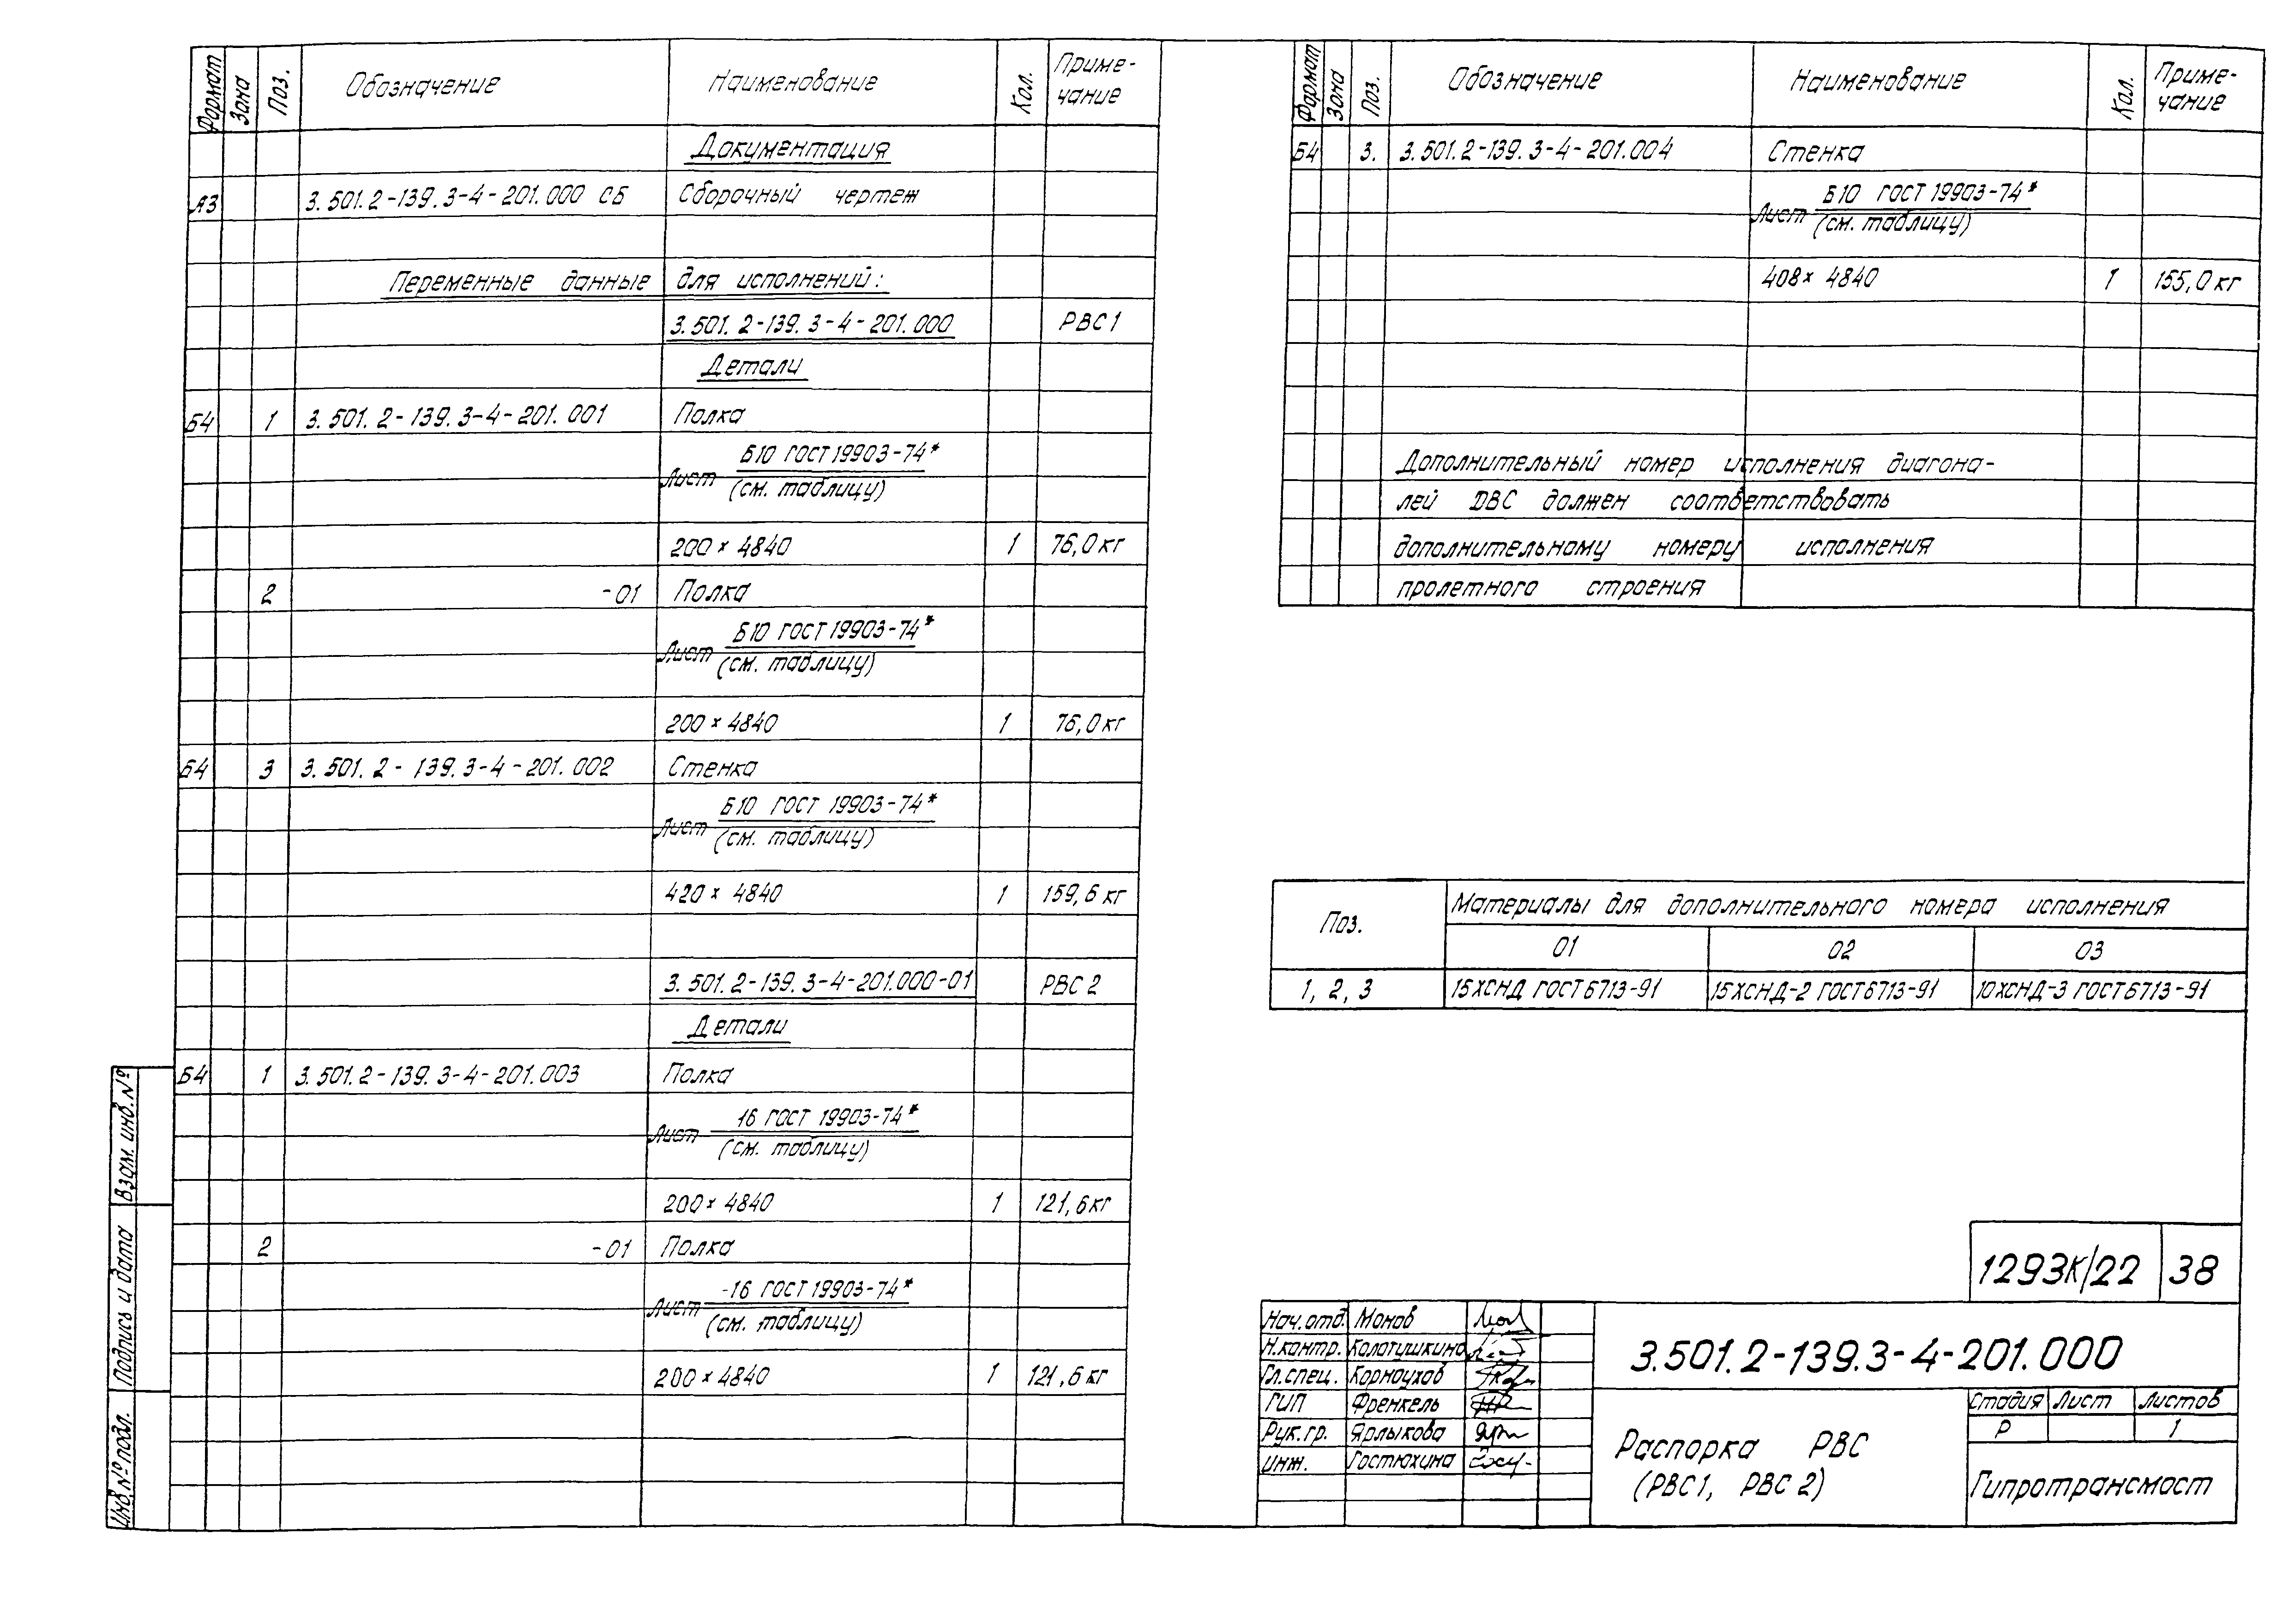 Формат Зона Поз. Обозначение Наименование Кол. Приме-
чание
Документация
А3 3.501.2-139.3-4-201.000 СБ Сборочный чертеж
Переменные данные для исполнений:
3.501.2-139.3-4-201.000 РВС1
Детали
Б4 1 3.501.2-139.3-4-201.001 Полка
Лист Б10 ГОСТ 19903-74*
(см. таблицу)
200×4840 1 76,0кг
2 -01 Полка
Лист Б10 ГОСТ 19903-74*
(см. таблицу)
200×4840 1 76,0кг
Б4 3 3.501.2-139.3-4-201.002 Стенка
Лист Б10 ГОСТ 19903-74*
(см. таблицу)
420×4840 1 159,6кг
3.501.2-139.3-4-201.000-01 РВС2
Детали
Б4 1 3.501.2-139.3-4-201.003 Полка
Лист 16 ГОСТ 19903-74*
(см. таблицу)
200×4840 1 121,6кг
2 -01 Полка
Лист -16 ГОСТ 19903-74*
(см. таблицу)
200×4840 1 121,6кг
Взам. инв. №
Подпись и дата
Инв. № подл.
Формат Зона Поз. Обозначение Наименование Кол. Приме-
чание
Б4 3. 3.501.2-139.3-4-201.004 Стенка
Лист Б10 ГОСТ 19903-74*
(см. таблицу)
408×4840 1 155,0кг
Дополнительный номер исполнения диагона-
лей DВС должен соответствовать
дополнительному номеру исполнения
пролетного строения
Поз. Материалы для дополнительного номера исполнения
01 02 03
1, 2, 3 15ХСНД ГОСТ6713-91 15ХСНД-2 ГОСТ6713-91 10ХСНД-3 ГОСТ6713-91
1293К/22 38
Нач.отд. Монов
Н.контр. Колотушкина
Гл.спец. Корноухов
ГИП Френкель
Рук.гр. Ярлыкова
инж. Гостюхина
3.501.2-139.3-4-201.000
Распорка РВС
(РВС1, РВС2)
Стадия Лист Листов
Р 1
Гипротрансмост